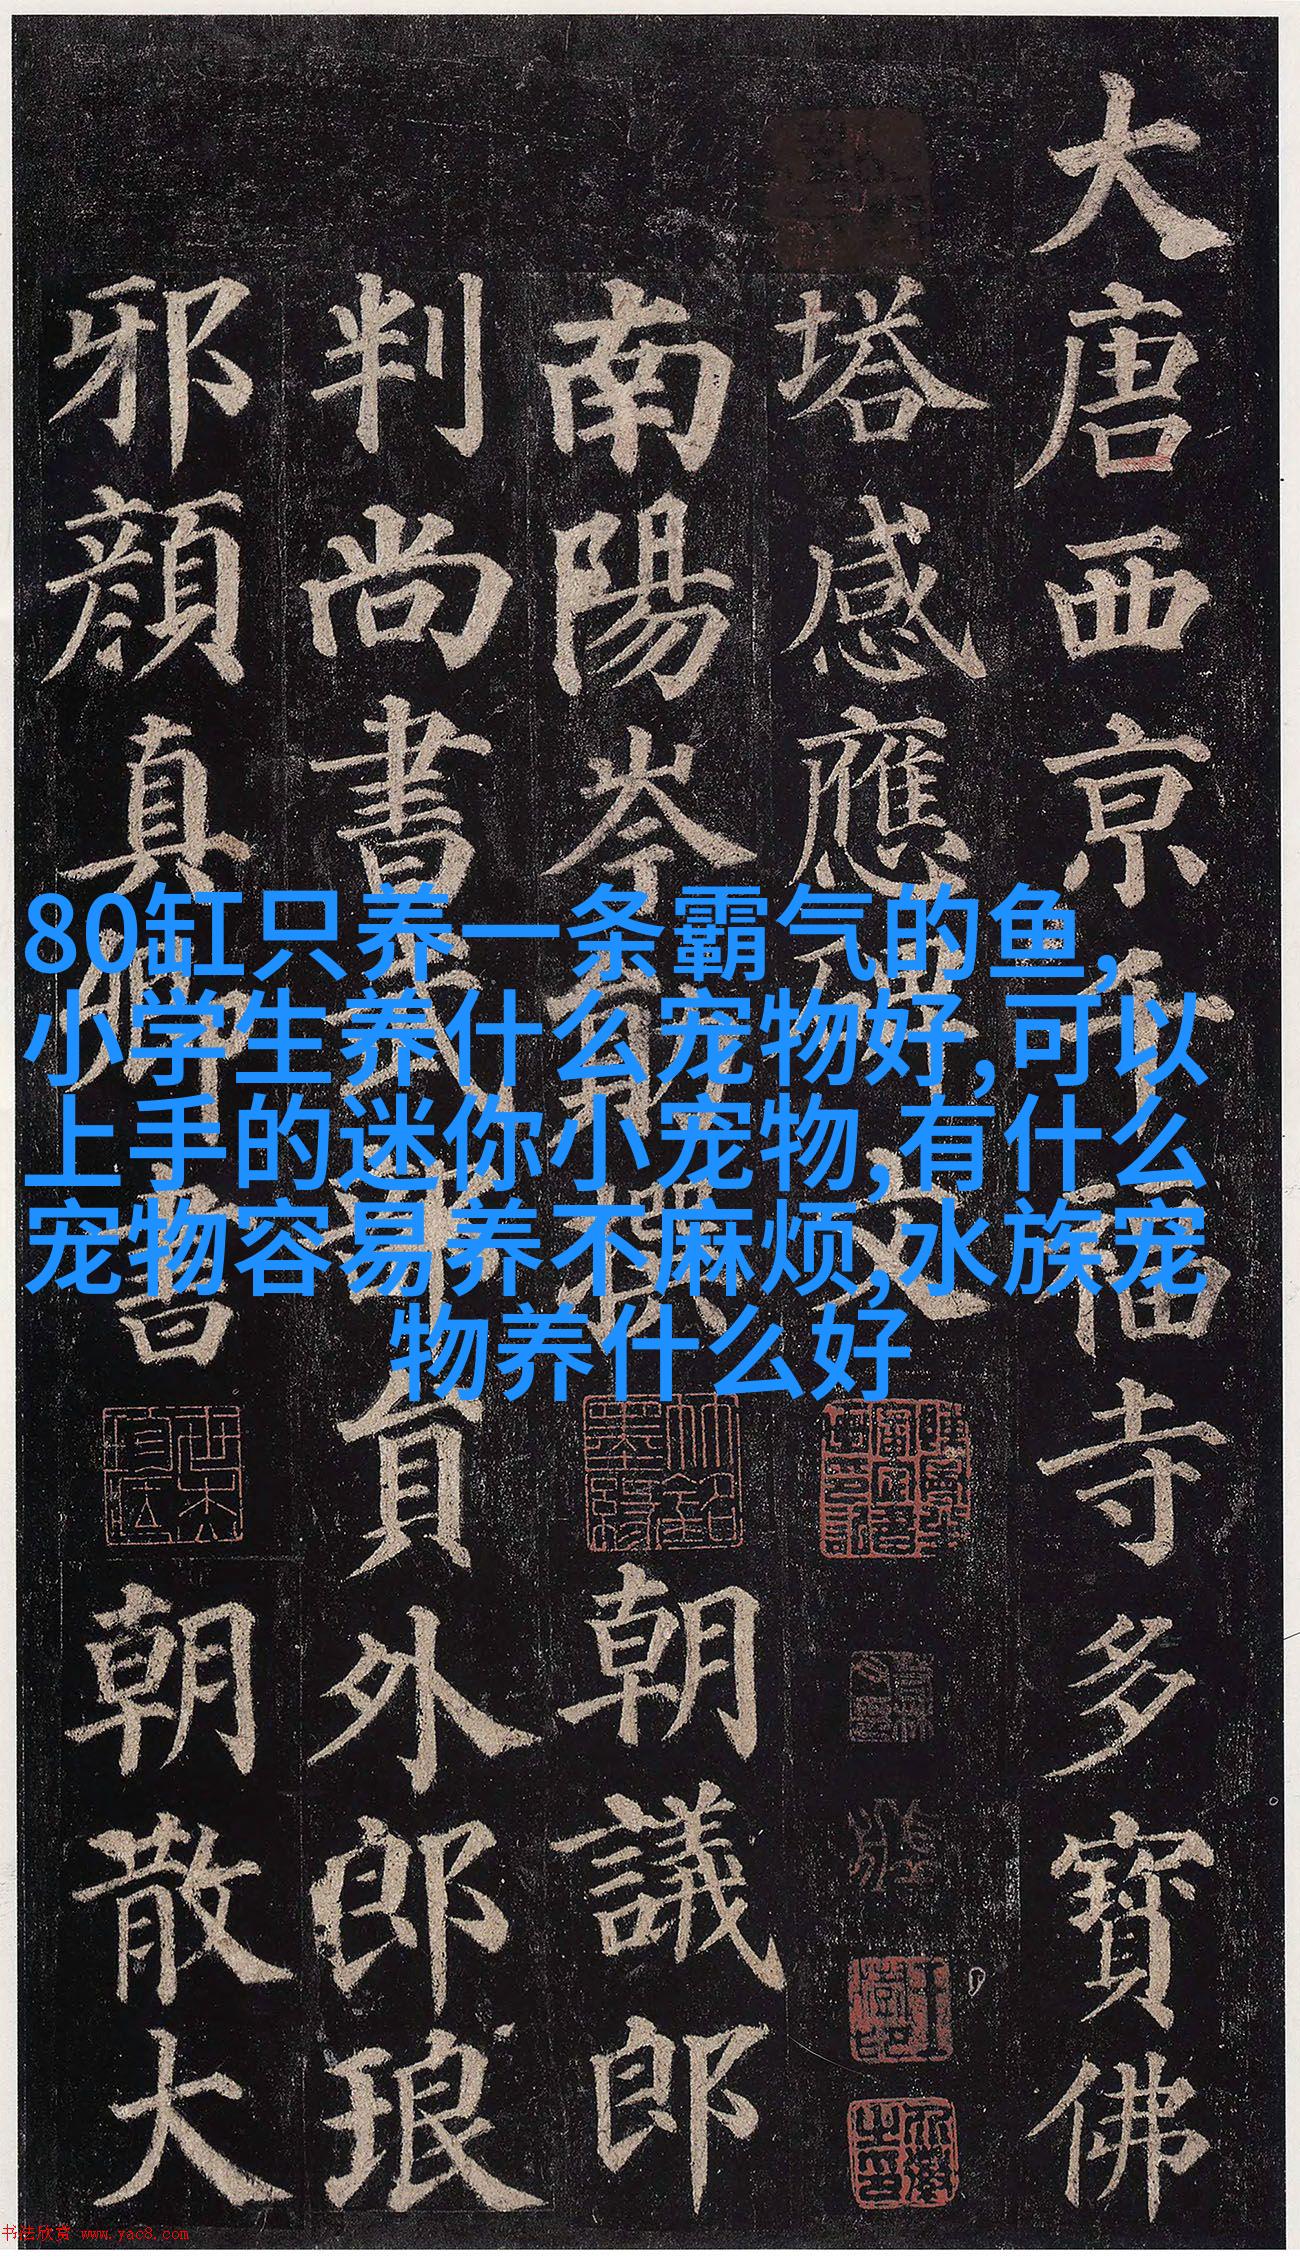 大唐西京千福寺多寶佛
塔感應碑文
南陽岑勛撰 朝議郎
判尚書武部員外郎琅
邪顏真卿書 朝散大
80缸只养一条霸气的鱼,
小学生养什么宠物好,可以
上手的迷你小宠物,有什么
宠物容易养不麻烦,水族宠
物养什么好
书法欣赏 www.yac8.com